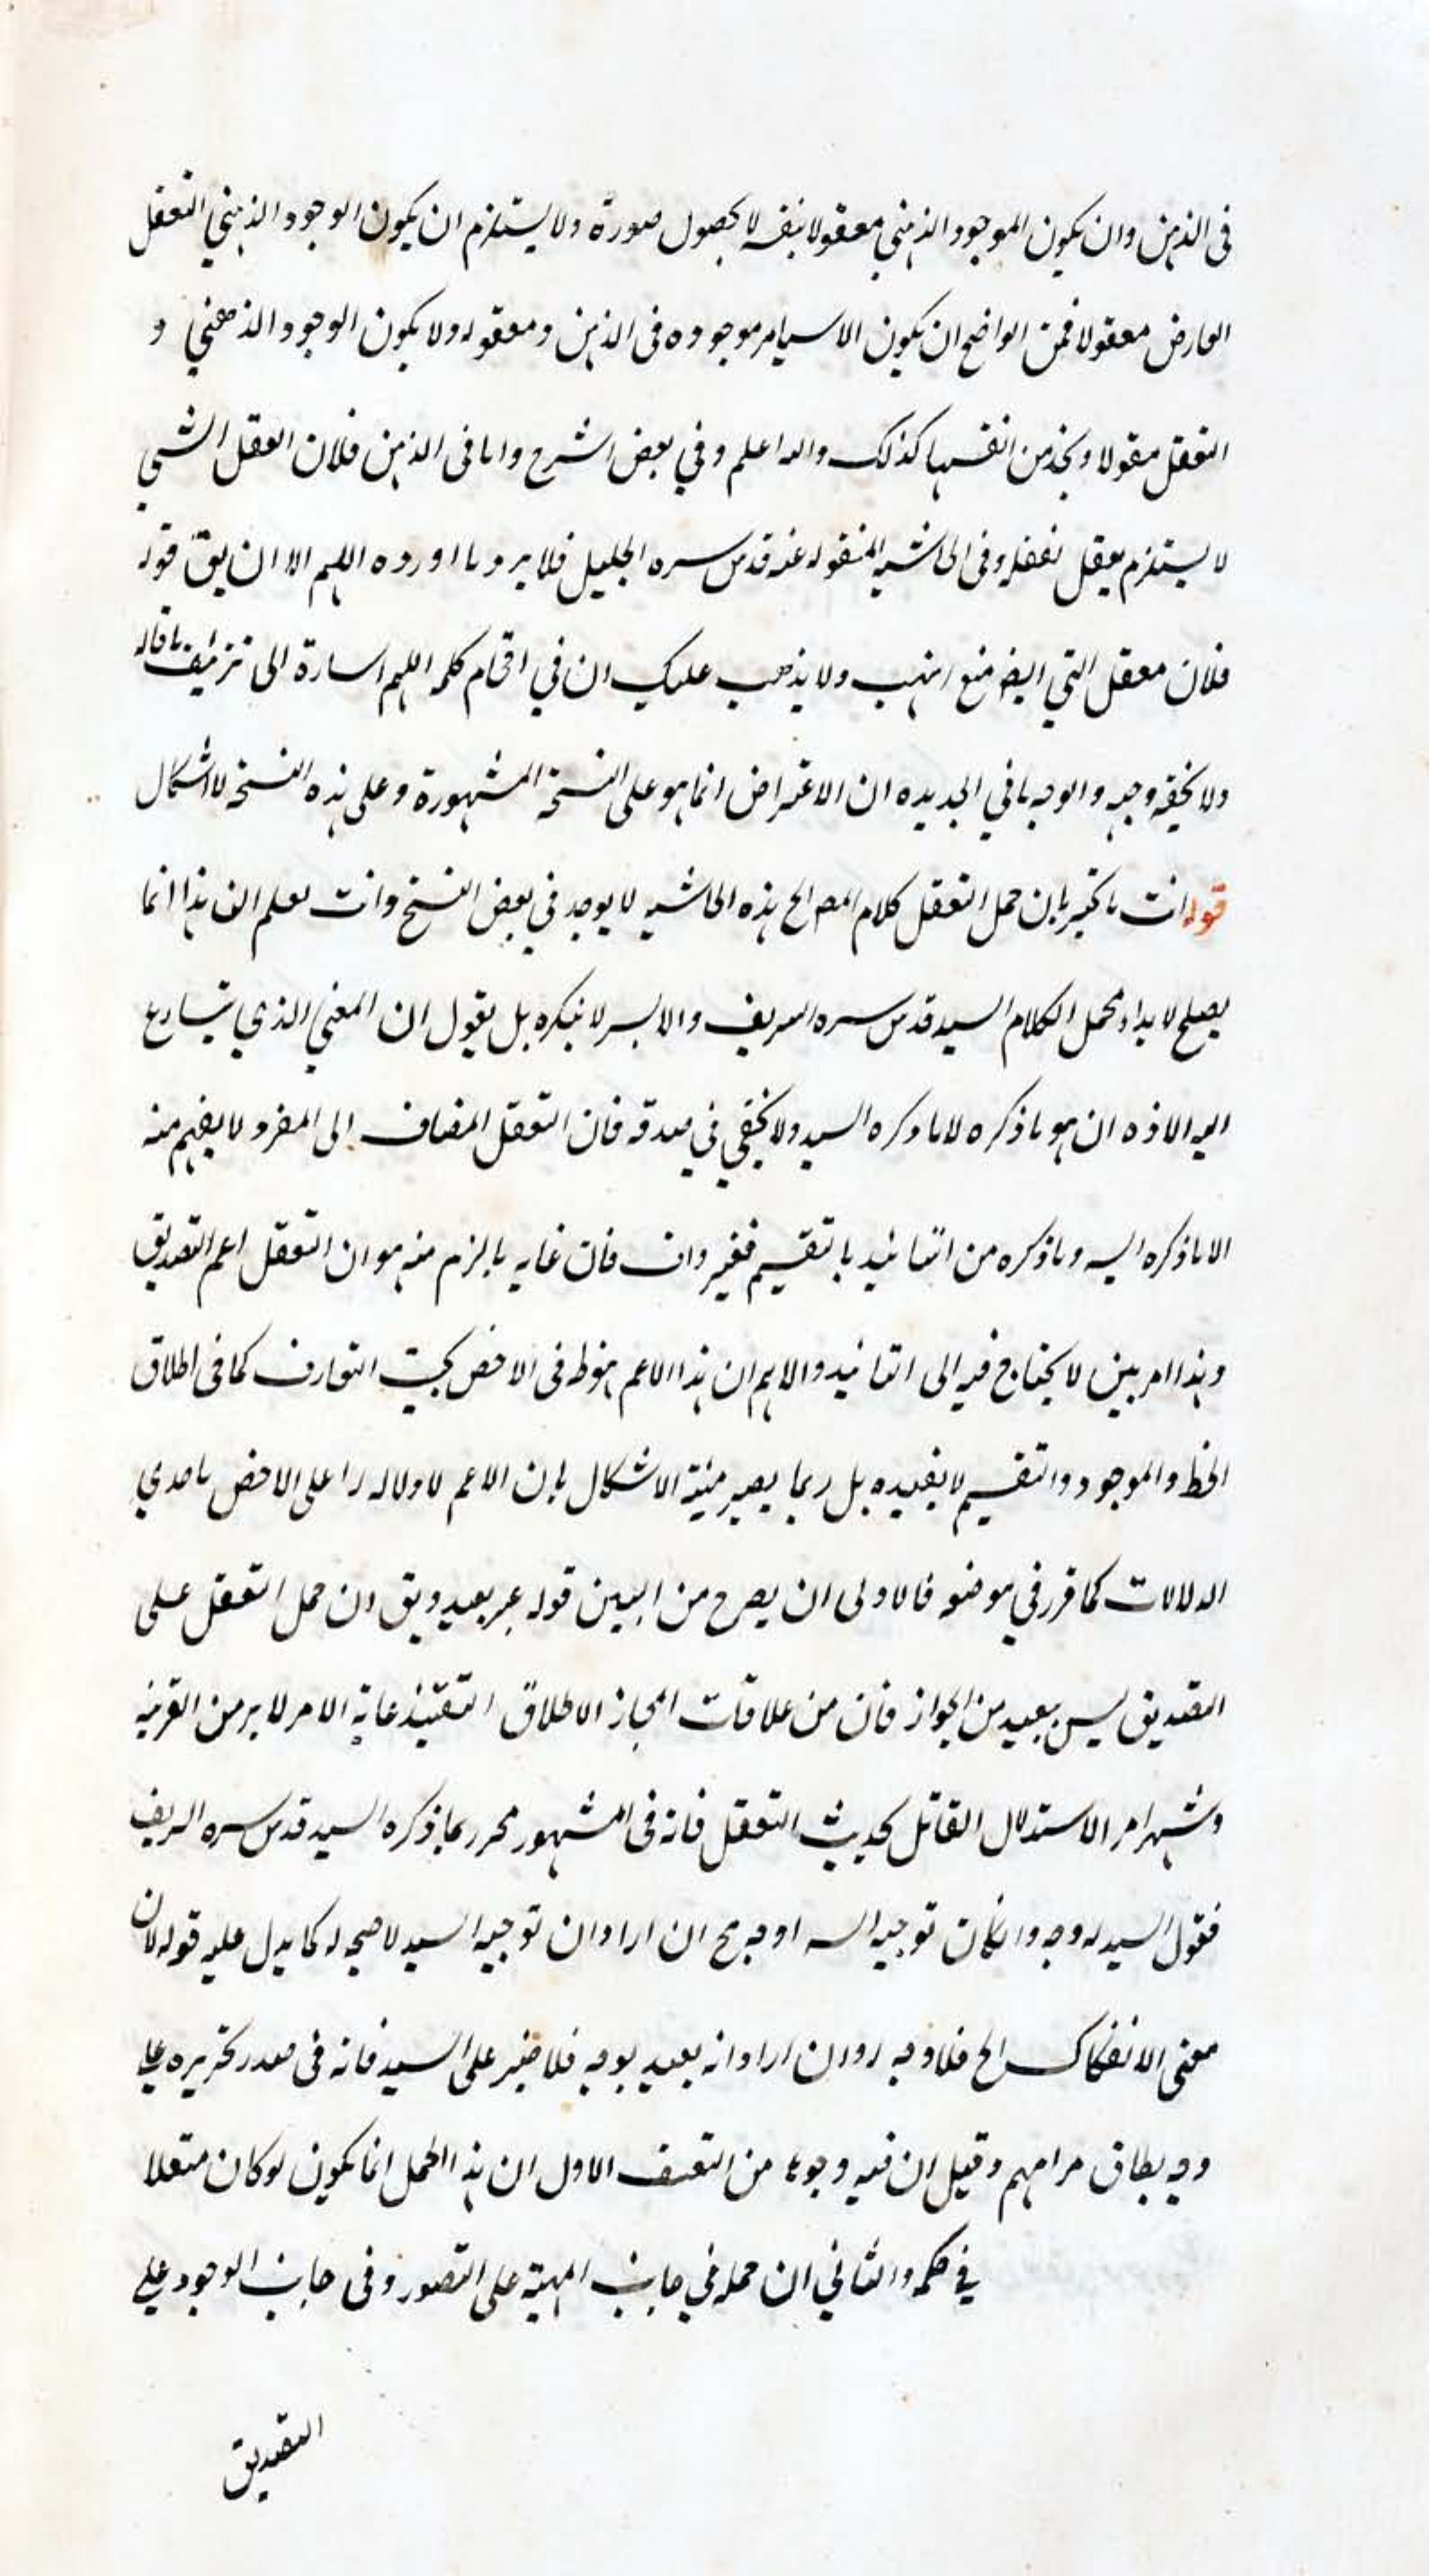 فى الذهن وان يكون الموجود الذهني معقولا بنفسه لا بحصول صورة ولا يستلزم ان يكون الوجود الذهني التعقل
العارض معقولا فمن الواضح ان يكون الاسيامر موجوده فى الذهن ومعقوله ولا يكون الوجود الذهني و
التعقل مقولا ونجد من انفسها كذلك والله اعلم وفي بعض الشرح واما فى الذهن فلان العقل الشي
لا يستلزم تعقل تعقله وفى الحاشيه المنقوله عنه قدس سره الجليل فلا يرد ما اورده اللهم الا ان يق قوله
فلان معقل التي ايضا منع انتهب ولا يذهب عليك ان في اقحام كلمه اللهم اسارة الى تزئيف ما قاله
ولا يخفى وجهه والوجه ما في الجديده ان الاعتراض انما هو على النسخة المشهورة وعلى هذه النسخه لا اشكال
قوله انت ما تخبر بان حمل التعقل كلام المص الخ هذه الحاشيه لا يوجد في بعض النسخ وانت تعلم ان هذا انما
يصلح لابداء محمل الكلام السيد قدس سره السريف والا بسر لا ينكره بل يقول ان المعني الذي يتسارع
اليه الاذهان هو ما ذكره لا ما ذكره السيد ولا يخفي في صدقه فان التعقل المضاف الى المفرد لا يفهم منه
الا ما ذكره السيد وما ذكره من التائيد بالتقسيم فغير واف فان غايه ما لزم منه هو ان التعقل اعم التصديق
وهذا امر بين لا يحتاج فيه الى التائيد والاهم ان هذا الاعم هوط فى الاخص بحيث التعارف كما فى اطلاق
الخط والموجود والتقسيم لا يفيده بل ربما يصير منيّة الاشكال بان الاعم لا دلاله له على الاخص باحدي
الدلالات كما قرر في موضعه فالاولى ان يصرح من البين قوله غير بعيد ويق ان حمل التعقل على
التصديق ليس ببعيد من الجواز فان من علاقات المجاز الاطلاق التقئيد غاية الامر لا بد من القرينه
وشهرامر الاستدلال القائل بحديث التعقل فانه فى المشهور محرر بما ذكره السيد قدس سره الريف
فقول السيد له وجه وان كان توجيه السه اوجه ح ان اراد ان توجيه السيد لا صحه له كما يدل عليه قوله لان
معنى الانفكاك الخ فلا وجه له وان اراد انه بعيد بوجه فلا ضير على السيد فانه فى صدر تحريره على
وجه يطابق مرامهم وقيل ان فيه وجوها من التعسف الاول ان هذا الحمل انما يكون لو كان متعلا
في حكمه والثاني ان حمله في جانب المهية على التصور وفى جانب الوجود على
التصديق